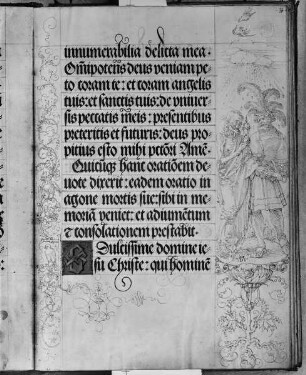 innumerabilia delicta mea.
Om̄ipotēs deus veniam pe
to coram te: et coram angelis
tuis: et sanctis tuis: de vniuer
sis peccatis meis: presentibus
preteritis et futuris: deus pro
pitius esto mihi pctōri Amē.
Quicūqȝ hanc oratiōem de
uote dixerit: eadem oratio in
agone mortis sue: sibi in me
moriā veniet: et adiumētum
⁊ consolationem prestabit.
Dulcissime domine ie
su Christe: qui hominē